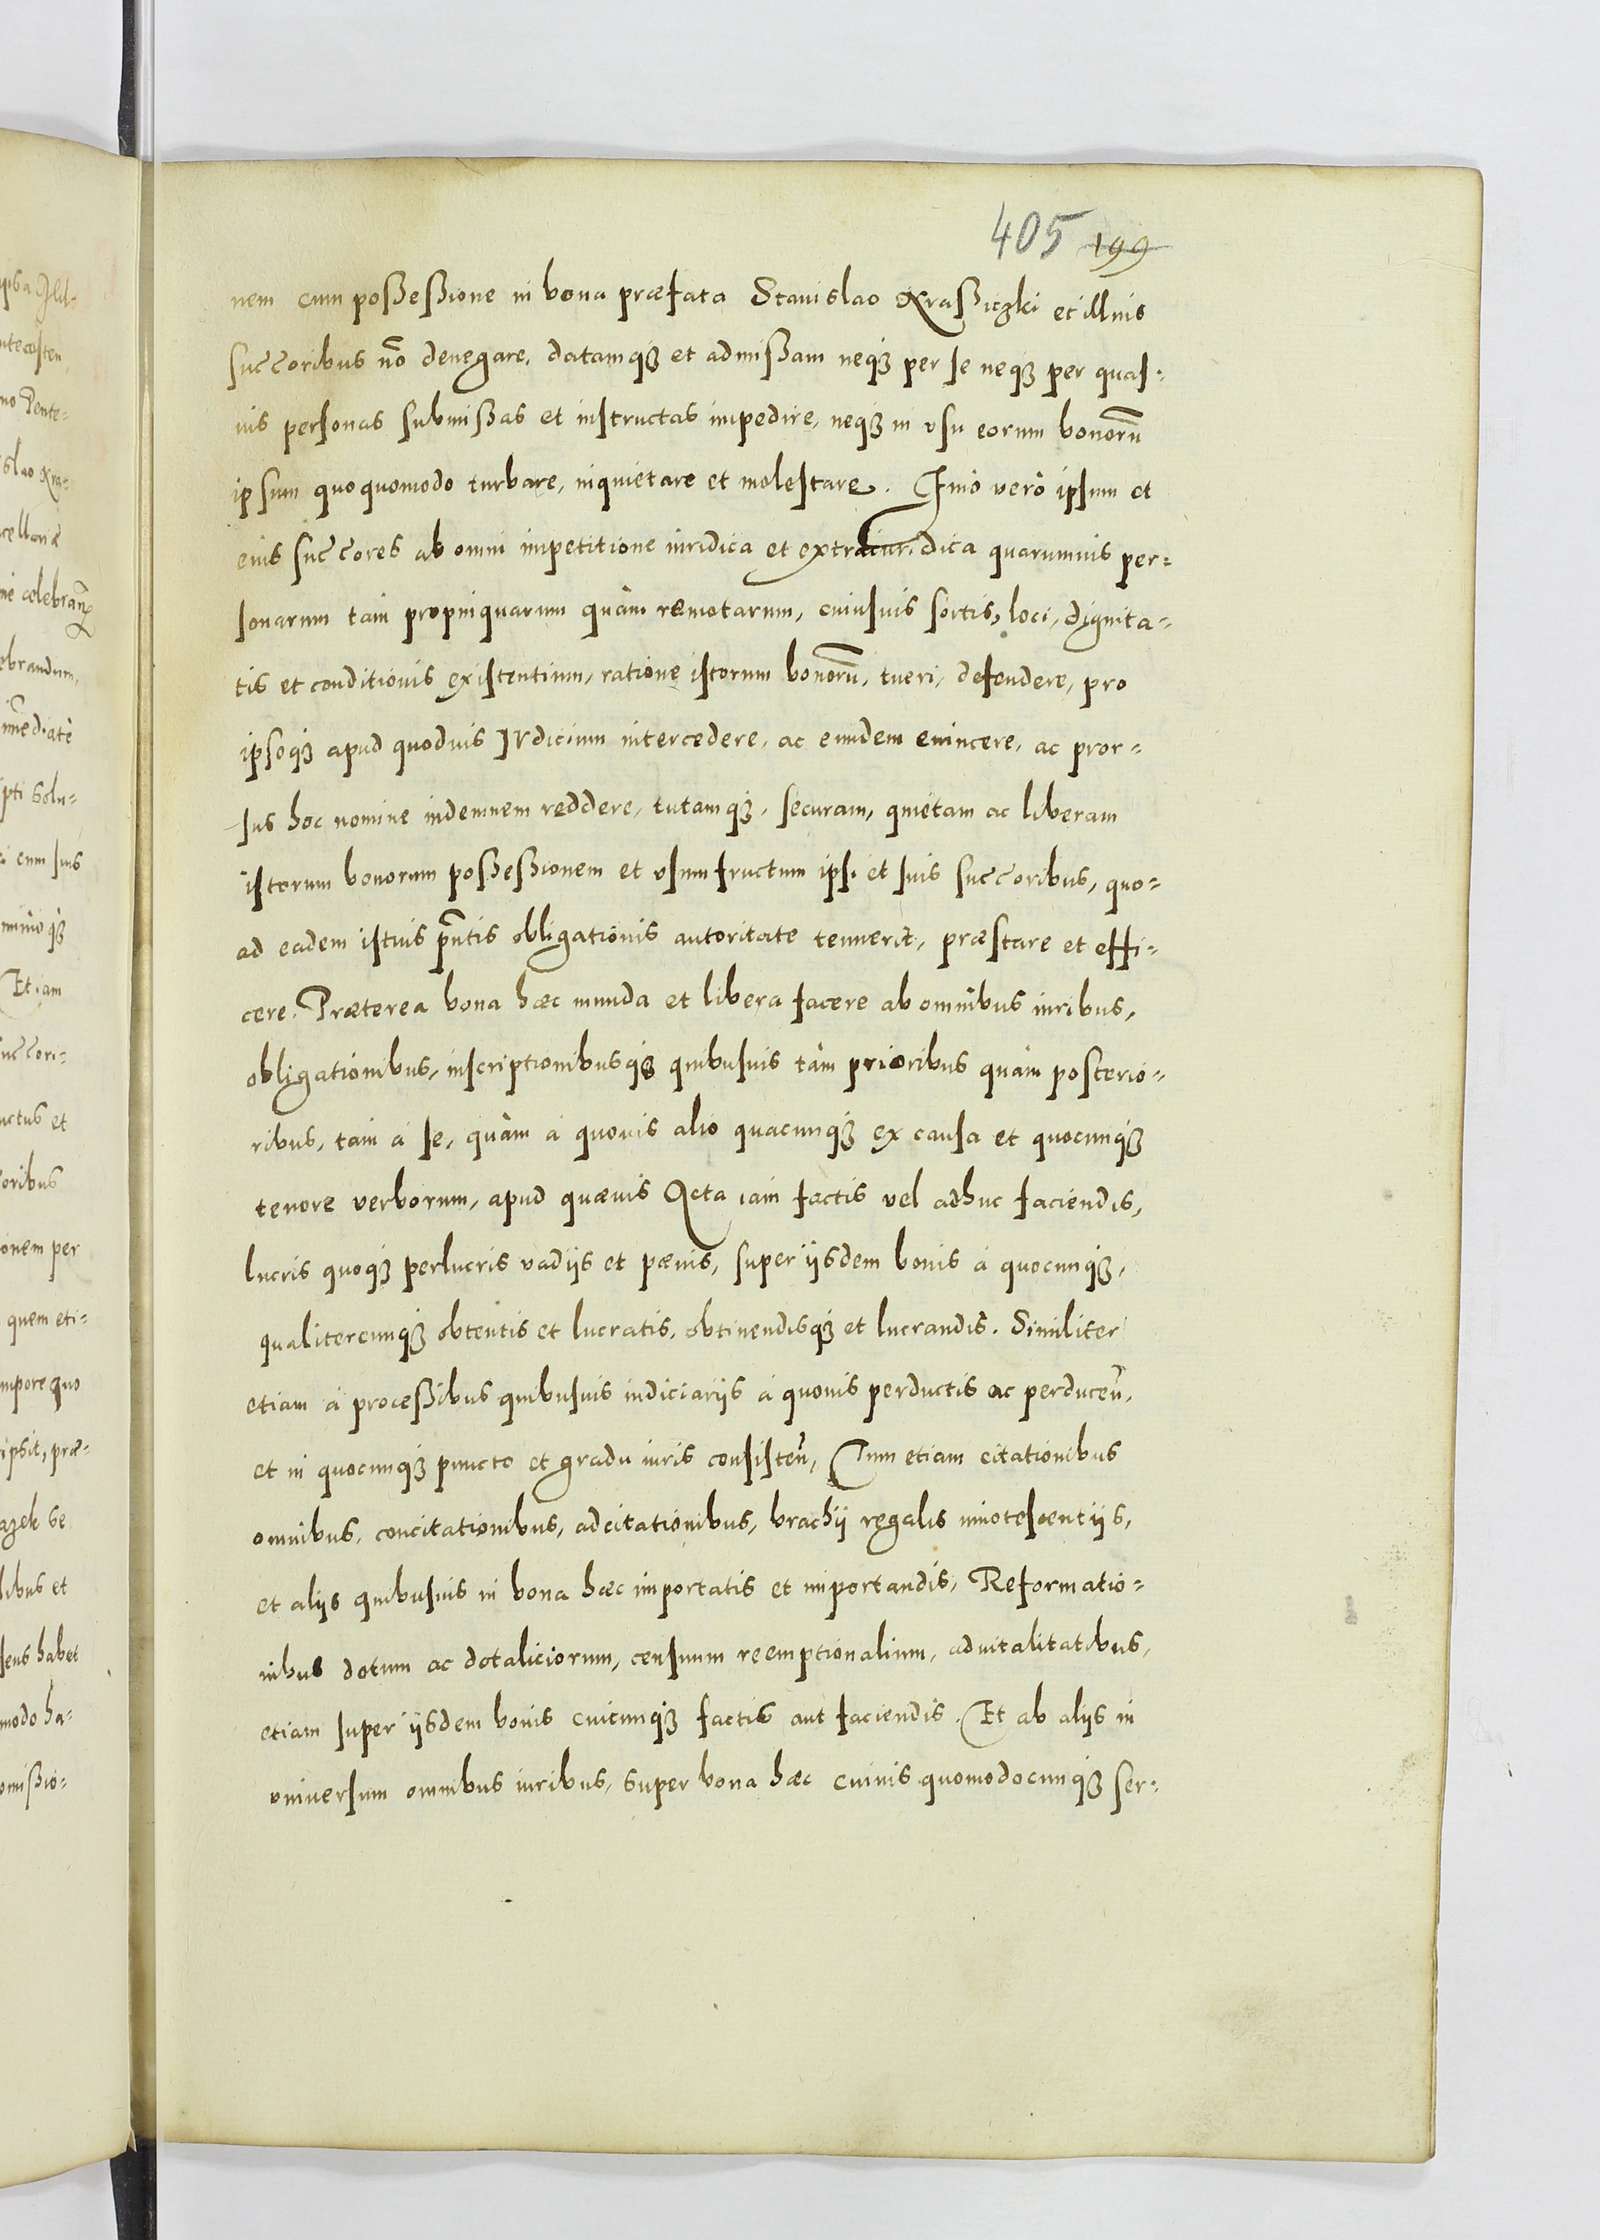 405 199
nem cum possessione in bona præfata Stanislao Krassiczki et illius
succoribus nõ denegare, datamq3 et admissam neq3 per se neq3 per quas-
uis personas submissas et instructas impedire, neq3 in vsu eorum bonorũ
ipsum quoquomodo turbare, inquietare et molestare. Imò verò ipsum et
eius succores ab omni impetitione iuridica et extraiuridica quarumuis per=
sonarum tam propinquarum quàm remotarum, cuiusuis sortis, loci, dignita=
tis et conditionis existentium, ratione istorum bonorũ, tueri, defendere, pro
ipsoq3 apud quoduis Iudicium intercedere, ac eundem euincere, ac pror=
sus hoc nomine indemnem reddere, tutamq3, securam, quietam ac liberam
istorum bonorum possessionem et vsumfructum ipsi et suis succoribus, quo=
ad eadem istius pñtis obligationis autoritate tenuerit, præstare et effi=
cere. Præterea bona hæc munda et libera facere ab omnibus iuribus,
obligationibus, inscriptionibusq3 quibusuis tàm prioribus quàm posterio=
ribus, tam à se, quàm à quouis alio quacunq3 ex causa et quocunq3
tenore verborum, apud quæuis Acta iam factis vel adhuc faciendis,
lucris quoq3 perlucris vadijs et pœnis, super ijsdem bonis à quocunq3,
qualitercunq3 obtentis et lucratis, obtinendisq3 et lucrandis. Similiter
etiam à processibus quibusuis iudiciarijs à quouis perductis ac perducen̄,
et in quocunq3 puncto et gradu iuris consisten̄, Tum etiam citationibus
omnibus, concitationibus, adcitationibus, brachij regalis innotescentijs,
et alijs quibusuis in bona hæc importatis et importandis, Reformatio=
nibus dotum ac dotaliciorum, censuum reemptionalium, aduitalitatibus,
etiam super ijsdem bonis cuicunq3 factis aut faciendis. Et ab alijs in
vniuersum omnibus iuribus, super bona hæc cuiuis quomodocunq3 ser=